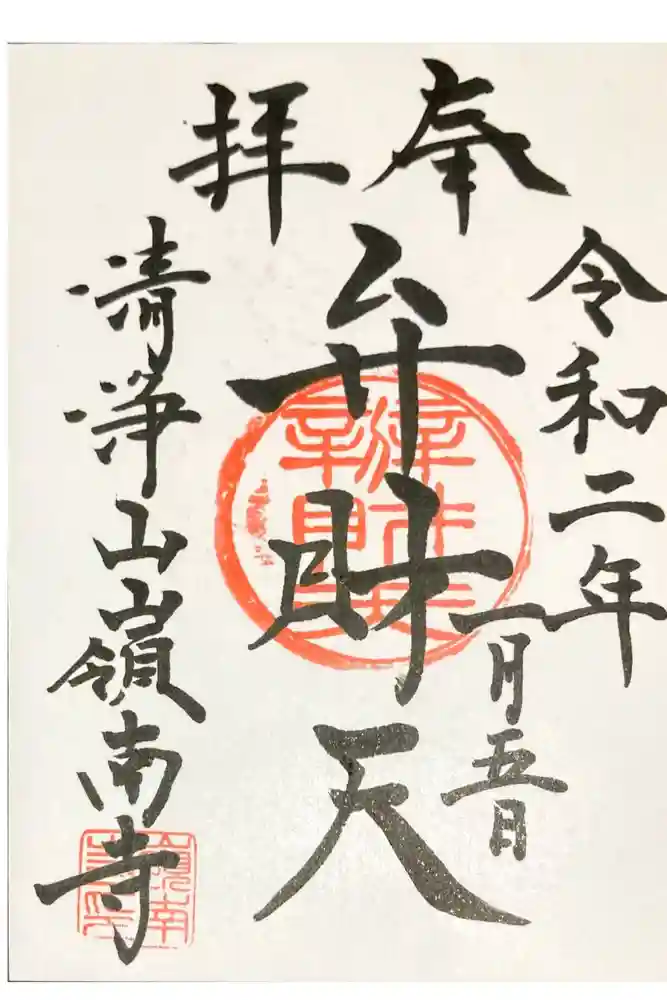 奉拝
令和二年
一月五日
弁財天
清浄山嶺南寺